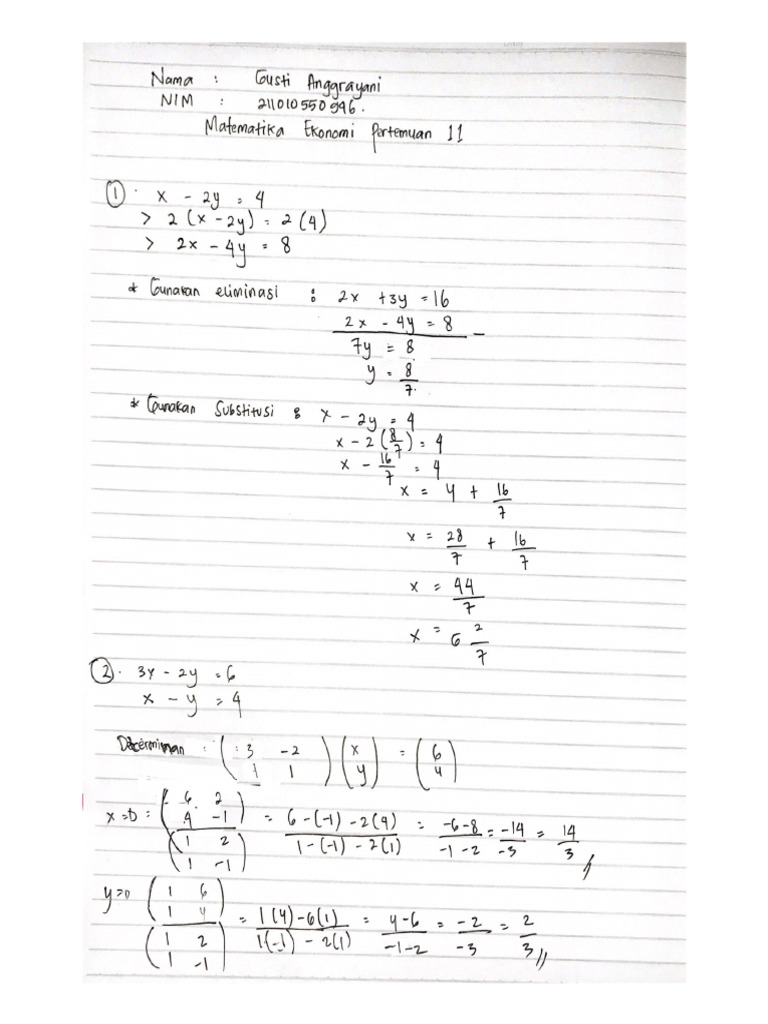 Nama : Gusti Anggrayani
NIM : 211010550546.
Matematika Ekonomi Pertemuan 11
① . x - 2y = 4
> 2 (x - 2y) = 2 (4)
> 2x - 4y = 8
* Gunakan eliminasi : 2x + 3y = 16
2x - 4y = 8 -
7y = 8
y = 8/7.
* Gunakan Substitusi : x - 2y = 4
x - 2 (8/7) = 4
x - 16/7 = 4
x = 4 + 16/7
x = 28/7 + 16/7
x = 44/7
x = 6 2/7
②. 3x - 2y = 6
x - y = 4
Determinan : (3 -2
1 1) (x
y) = (6
4)
x=D = (6 2
4 -1) / (1 2
1 -1) = 6-(-1) - 2(4) / 1-(-1) - 2(1) = -6-8 / -1-2 = -14/-3 = 14/3 //
y=D (1 6
1 4) / (1 2
1 -1) = 1(4)-6(1) / 1(-1) - 2(1) = 4-6 / -1-2 = -2/-3 = 2/3 //